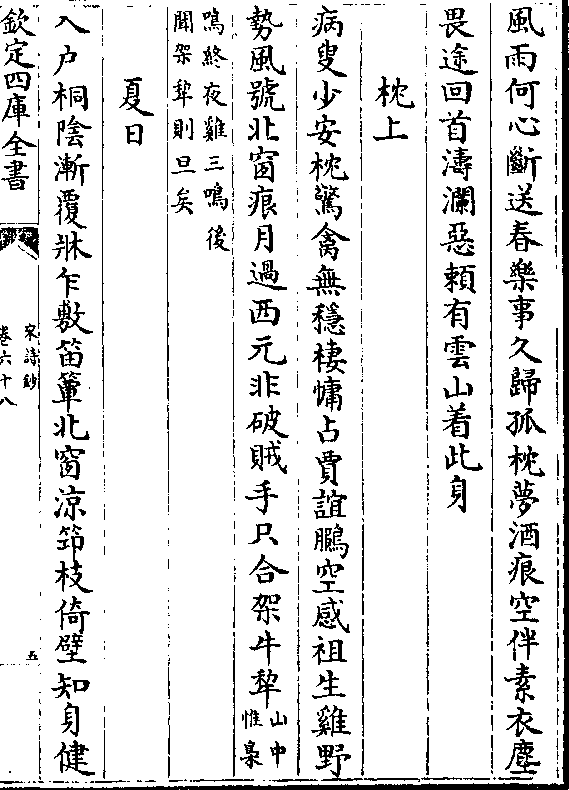 風雨何心斷送春樂事久歸孤枕夢酒痕空伴素衣塵
畏途回首濤瀾惡頼有雲山着此身
枕上
病叟少安枕驚禽無穏棲慵占賈誼鵩空感祖生雞野
勢風號北窗痕月過西元非破賊手只合架牛犂山中惟梟
鳴終夜雞三鳴後
聞架犂則旦矣
夏日
入户桐陰漸覆牀乍敷笛簟北窗涼笻枝倚壁知身健
欽定四庫全書
宋詩鈔
卷六十八
五